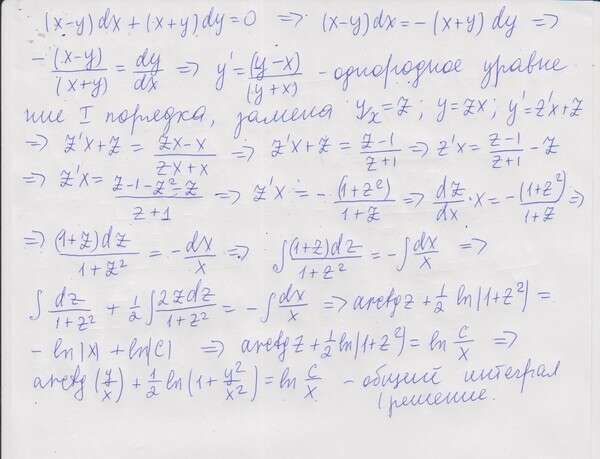 (x-y)dx + (x+y)dy = 0 ⇒ (x-y)dx = -(x+y)dy ⇒
-(x-y)/(x+y) = dy/dx ⇒ y' = (y-x)/(y+x) - однородное уравне
ние I порядка, замена y/x = z; y = zx; y' = z'x+z
⇒ z'x+z = (zx-x)/(zx+x) ⇒ z'x+z = (z-1)/(z+1) ⇒ z'x = (z-1)/(z+1) - z
⇒ z'x = (z-1-z²-z)/(z+1) ⇒ z'x = -(1+z²)/(1+z) ⇒ dz/dx·x = -(1+z²)/(1+z) ⇒
⇒ (1+z)dz/(1+z²) = -dx/x ⇒ ∫(1+z)dz/(1+z²) = -∫dx/x ⇒
∫dz/(1+z²) + 1/2∫2zdz/(1+z²) = -∫dx/x ⇒ arctg z + 1/2 ln|1+z²| =
-ln|x| + ln|C| ⇒ arctg z + 1/2 ln|1+z²| = ln C/x ⇒
arctg(y/x) + 1/2 ln(1 + y²/x²) = ln C/x - общий интеграл
решение.